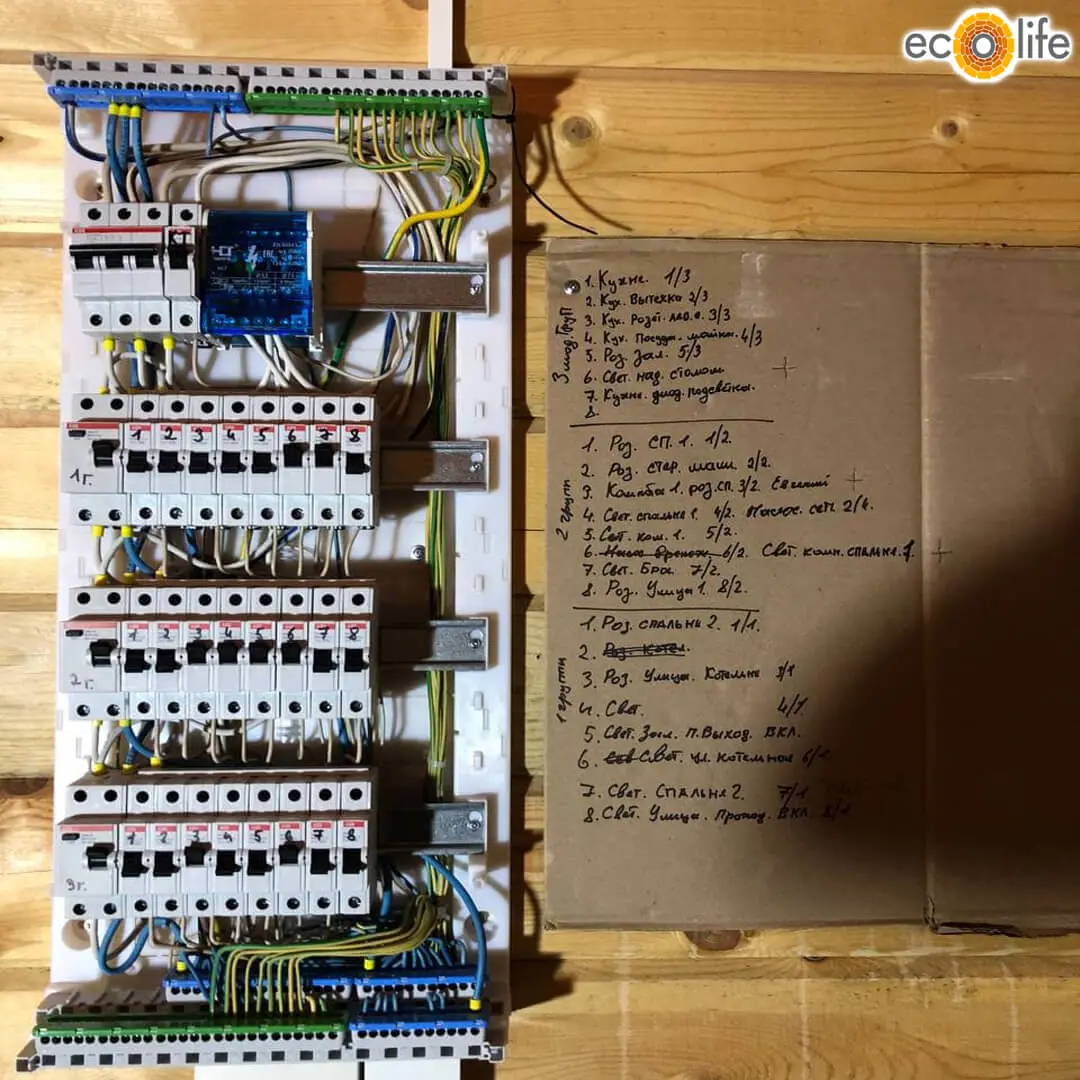 ecolife
1 2 3 4 5 6 7 8
1г.
1 2 3 4 5 6 7 8
2г.
1 2 3 4 5 6 7 8
3г.
1. Кухне. 1/3
2. Кух. Вытежка 2/3
3. Кух. Розет. 3/3
4. Кух. Посуда. мойка. 4/3
5. Роз. Зал. 5/3
6. Свет. над. столом
7. Кухне. диод. подсветка.
8.
2 групп
1. Роз. СП. 1. 1/2.
2. Роз. стер. маши. 2/2.
3. Комната 1. роз.сп. 3/2. Евгений
4. Свет. спальне 1. 4/2. 2/4.
5. Свт. ком. 1. 5/2.
6. 6/2. Свет. комн. спальне. 1.
7. Свт. Бра. 7/2.
8. Роз. Улица 1. 8/2.
1 групп
1. Роз. спальне 2. 1/1.
2. Роз. Котел.
3. Роз. Улица. Котельне 3/1
4. Свет. 4/1.
5. Свет. Зал. п. Выход. ВКЛ.
6. Свет. ул. котельное 6/1
7. Свет. Спальне 2. 7/1
8. Свет. Улица. Проход. ВКЛ. 8/1